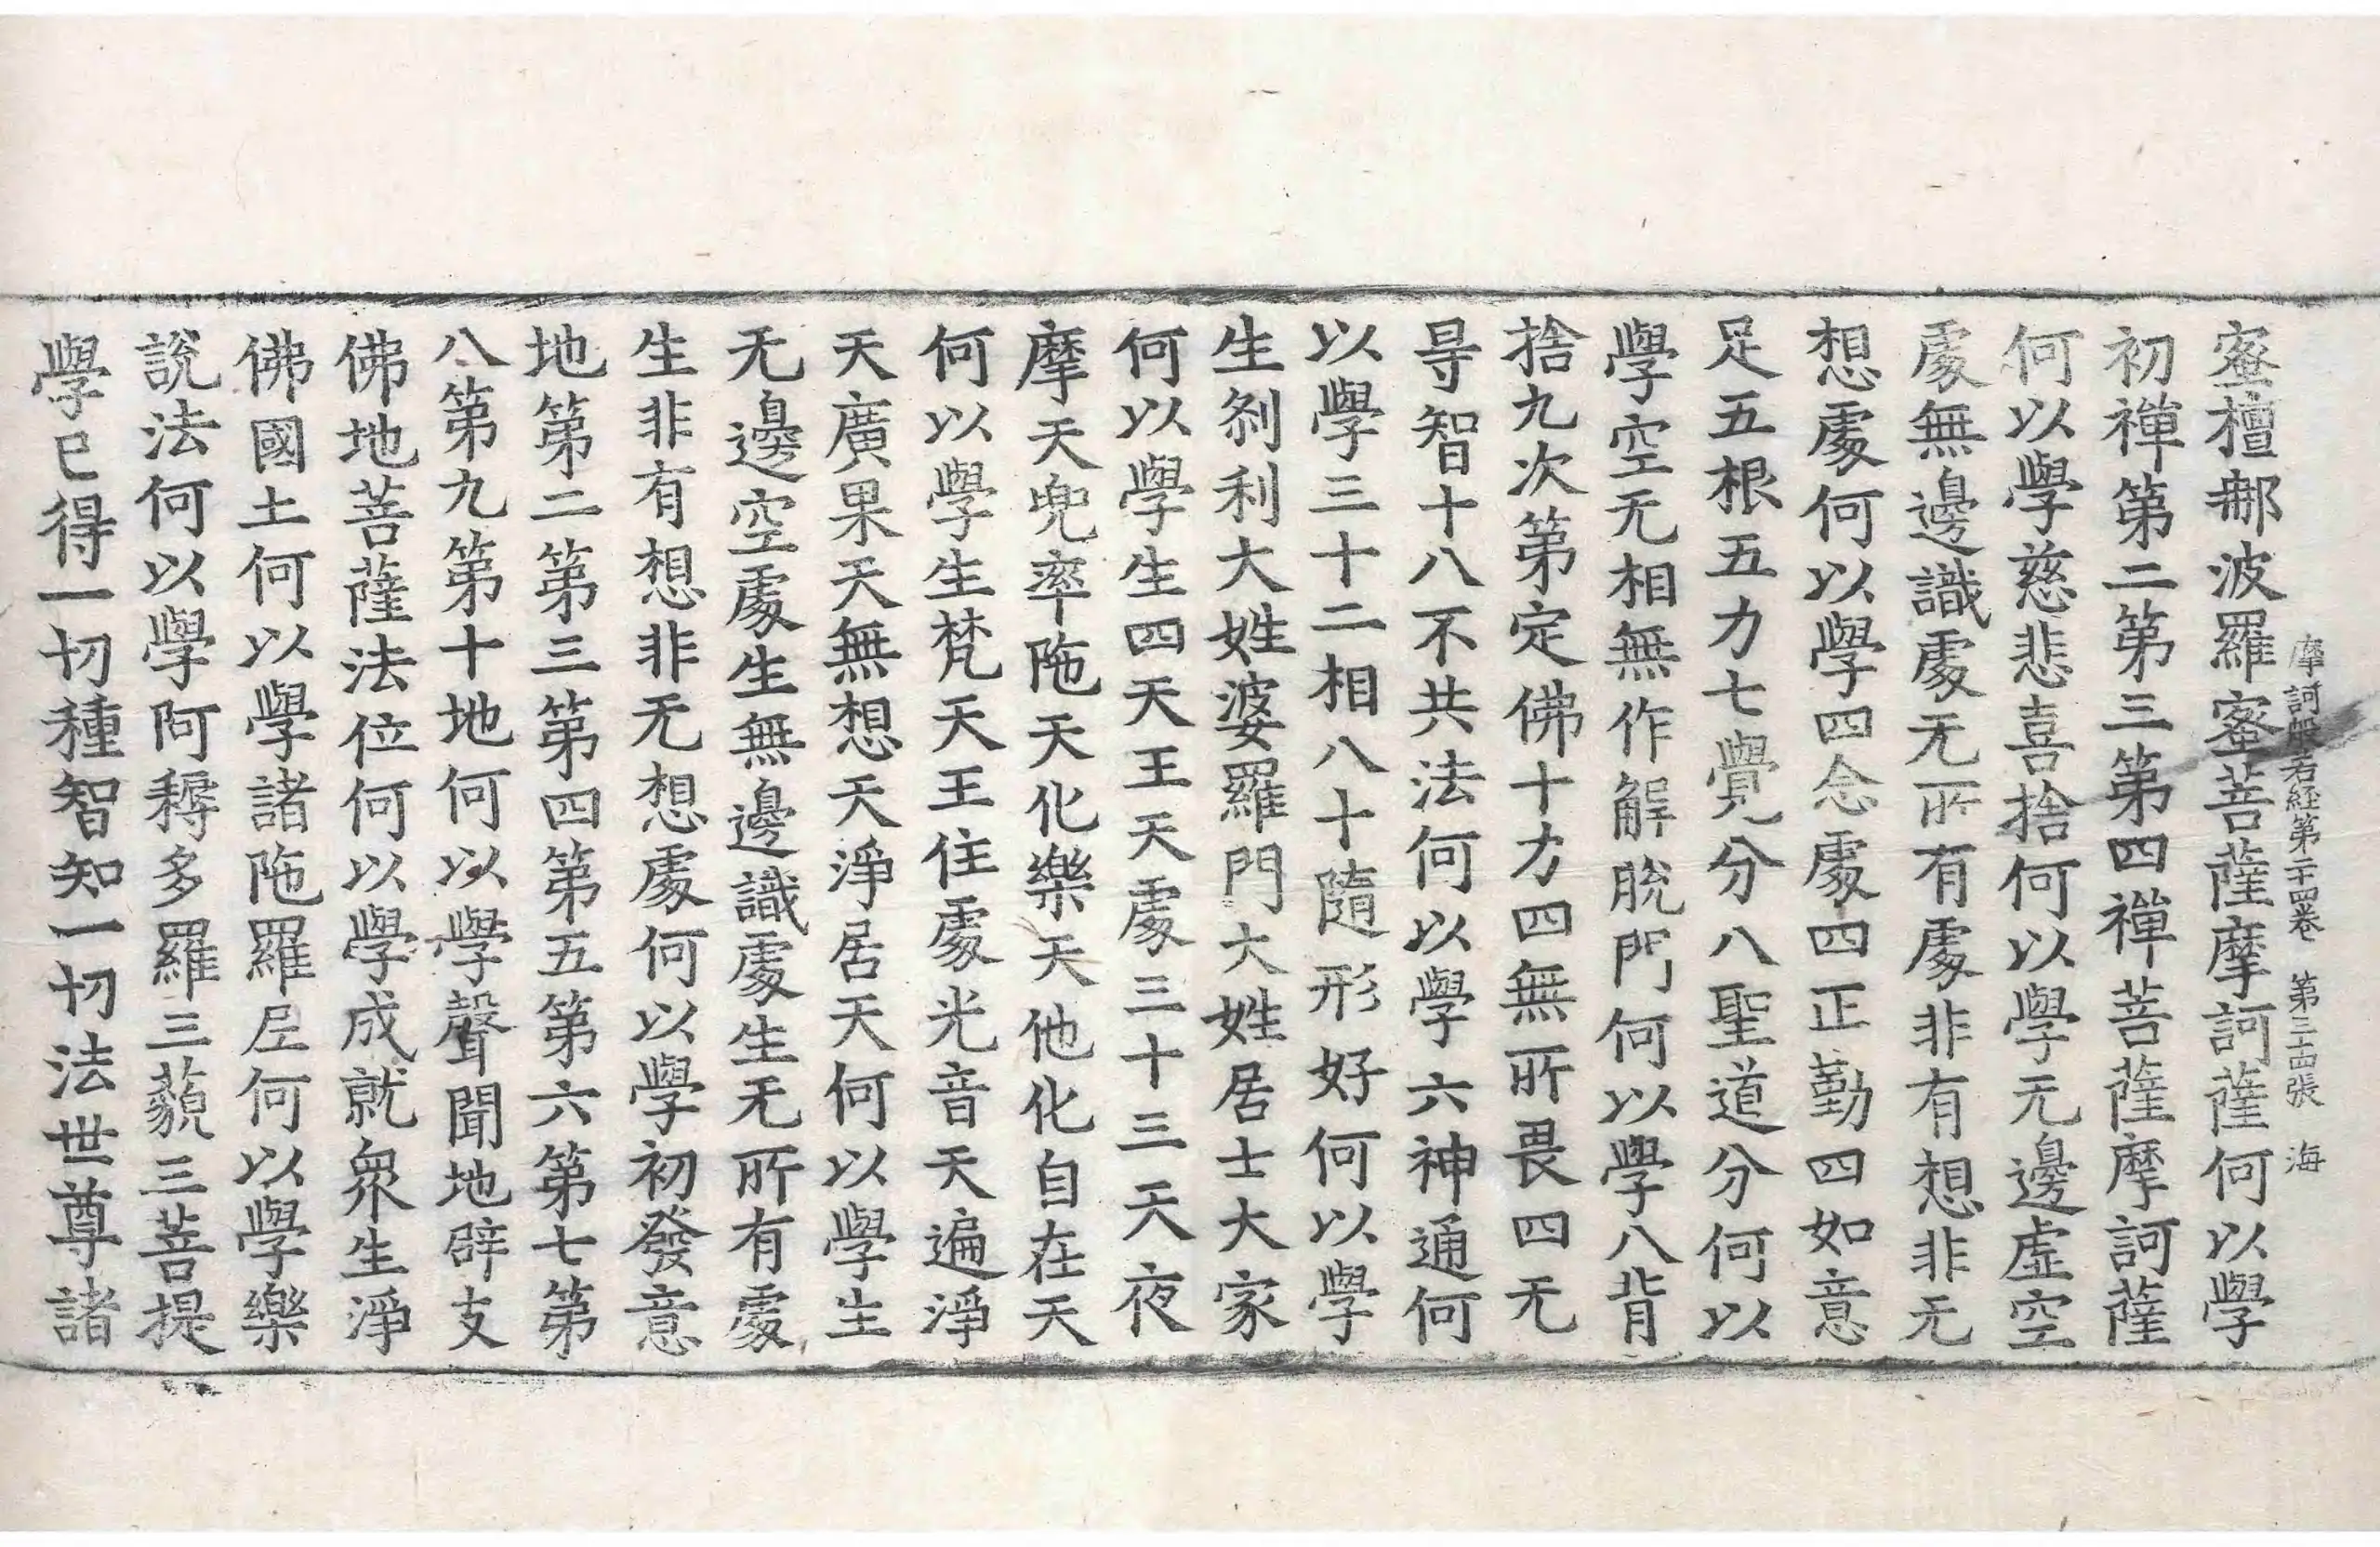 摩訶般若經第二十四卷 第三十四張 海
蜜檀䣭波羅蜜菩薩摩訶薩何以學
初禪第二第三第四禪菩薩摩訶薩
何以學慈悲喜捨何以學无邊虛空
處無邊識處无所有處非有想非无
想處何以學四念處四正勤四如意
足五根五力七覺分八聖道分何以
學空无相無作解脫門何以學八背
捨九次第定佛十力四無所畏四无
㝵智十八不共法何以學六神通何
以學三十二相八十隨形好何以學
生剎利大姓婆羅門大姓居士大家
何以學生四天王天處三十三天夜
摩天兜率陁天化樂天他化自在天
何以學生梵天王住處光音天遍淨
天廣果天無想天淨居天何以學生
无邊空處生無邊識處生无所有處
生非有想非无想處何以學初發意
地第二第三第四第五第六第七第
八第九第十地何以學聲聞地辟支
佛地菩薩法位何以學成就衆生淨
佛國土何以學諸陁羅尼何以學樂
說法何以學阿耨多羅三藐三菩提
學已得一切種智知一切法世尊諸